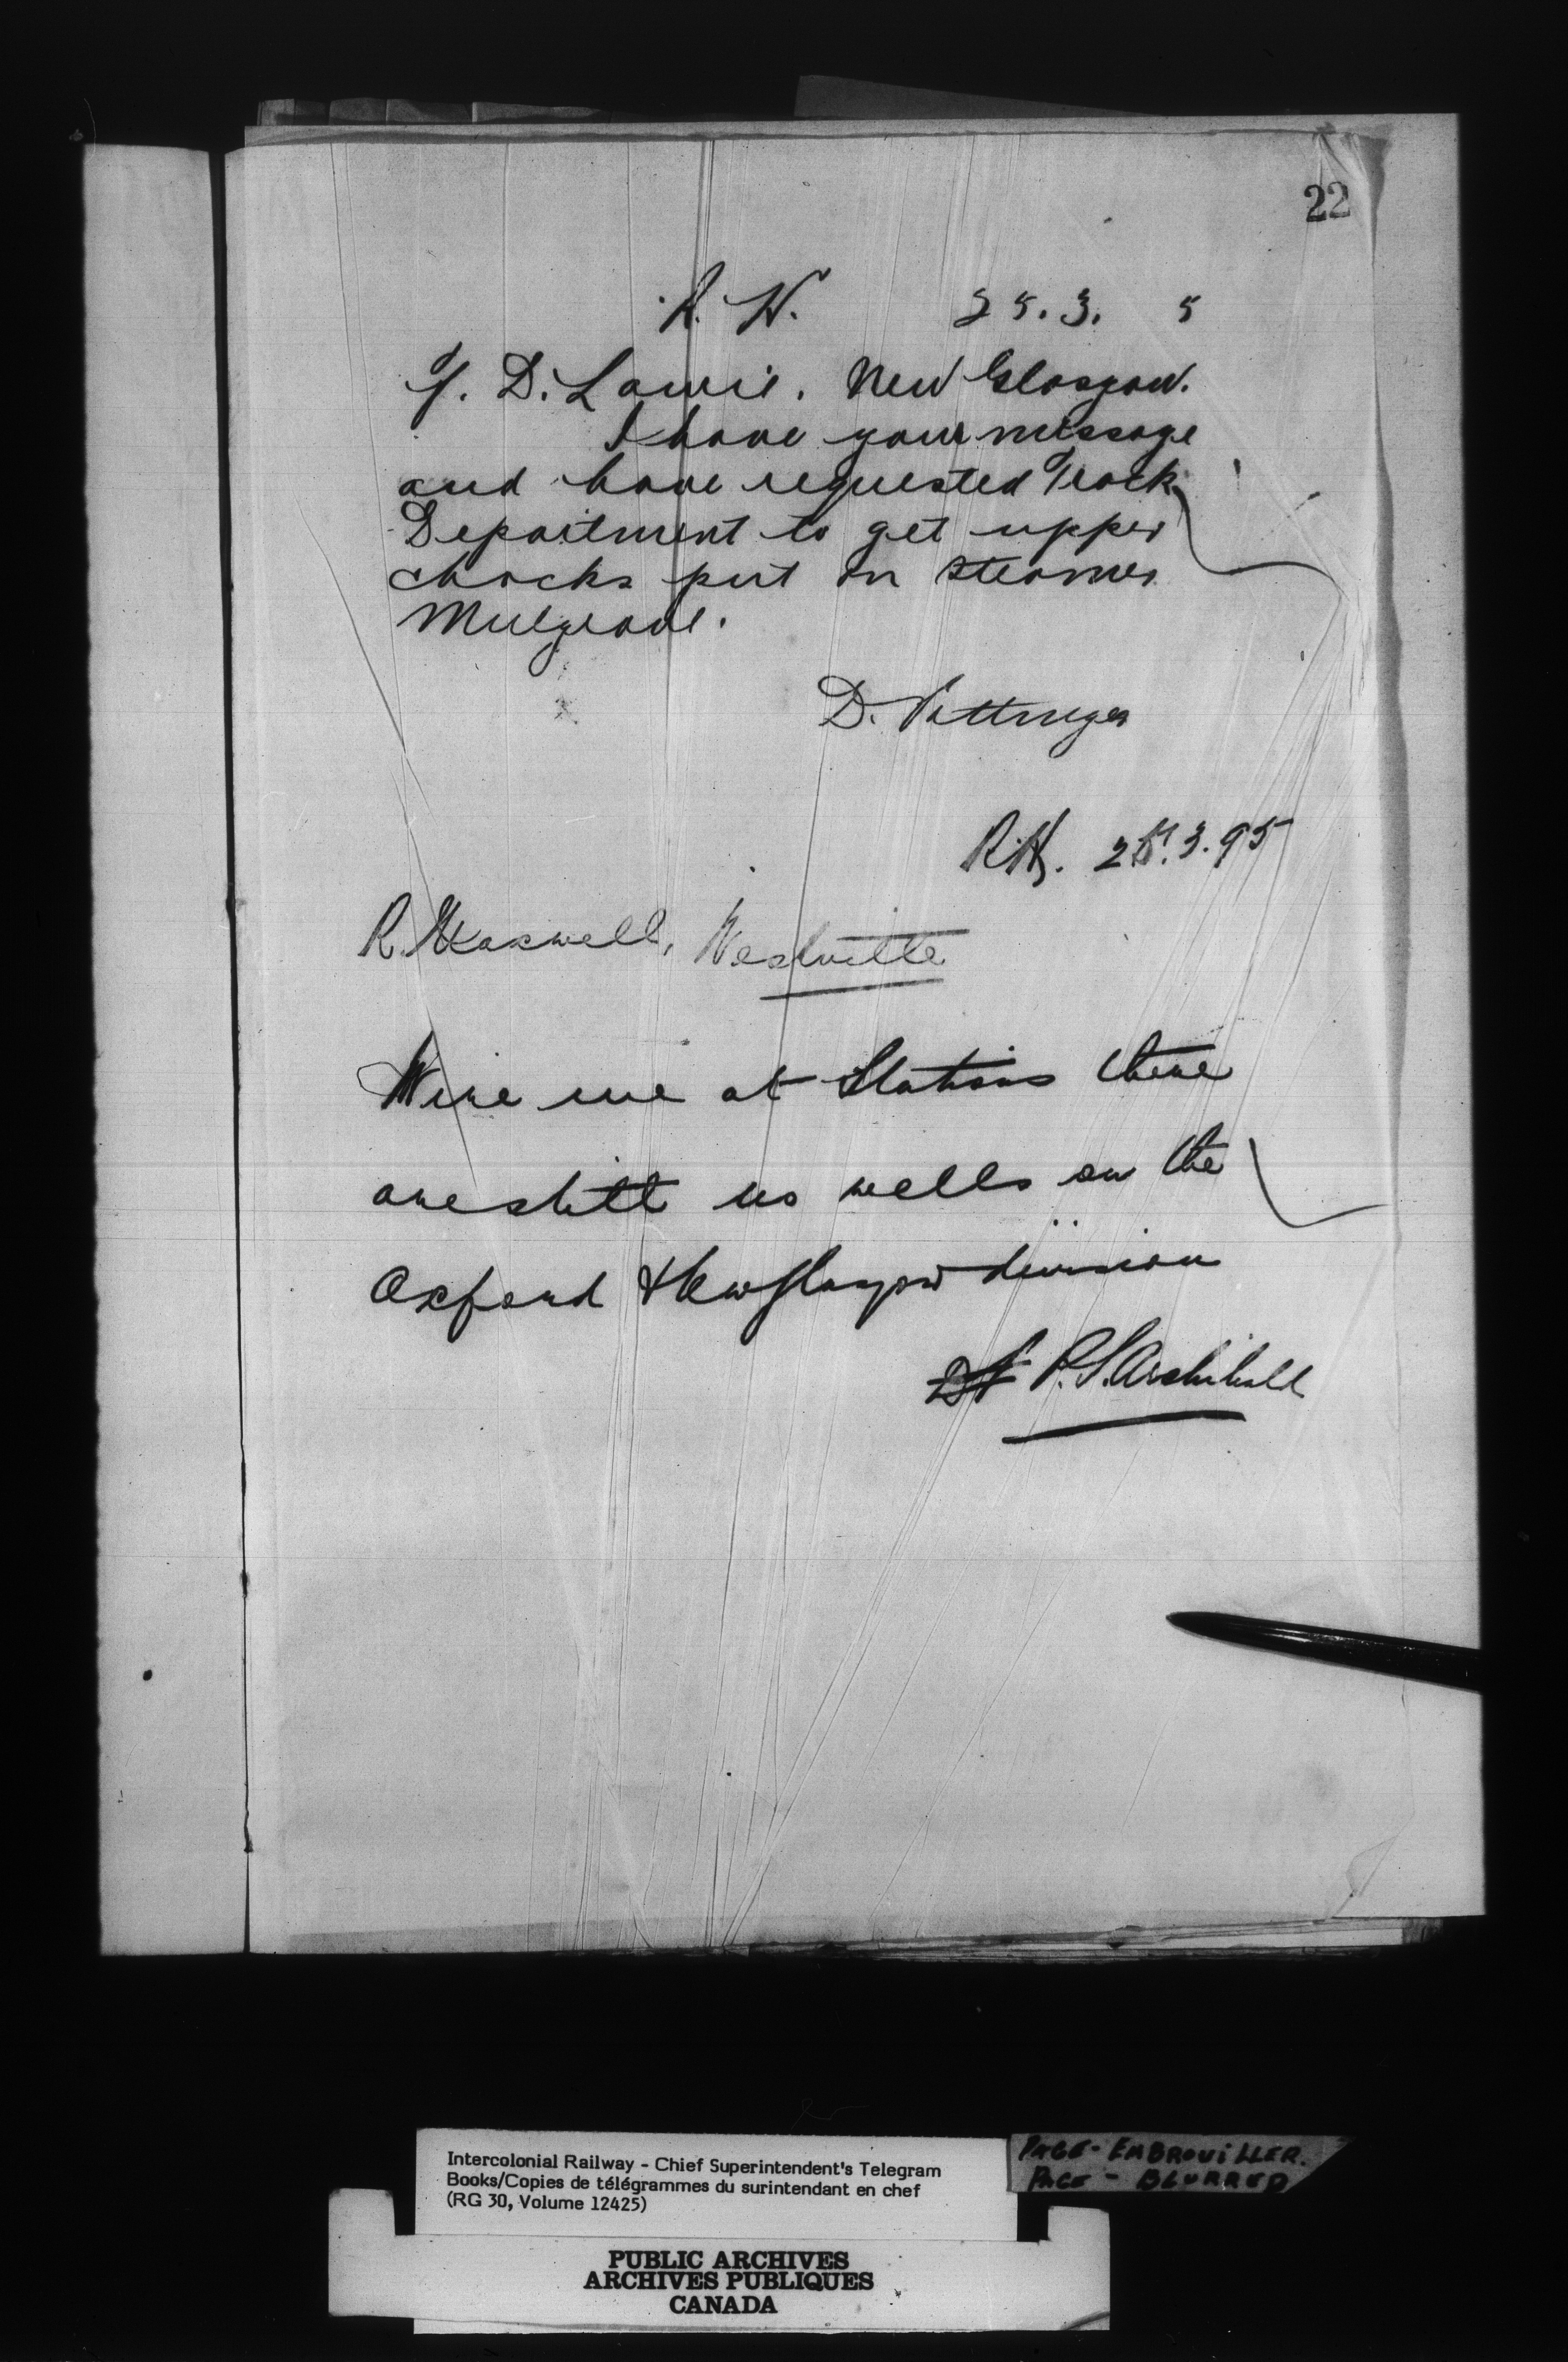 22
R. H. 25. 3. 5
Y. D. Lawrie. New Glasgow.
I have your message
and have requested Track
Department to get upper
chocks put on steamer
Mulgrave.
D. Pottinger
R.H. 25.3.95
R. Maxwell, Westville
Wire me at Stations there
are still no wells on the
Oxford & New Glasgow division
P.S. Archibald
Intercolonial Railway - Chief Superintendent's Telegram
Books/Copies de télégrammes du surintendant en chef
(RG 30, Volume 12425)
PAGE - EMBROUILLER.
PAGE - BLURRED
PUBLIC ARCHIVES
ARCHIVES PUBLIQUES
CANADA